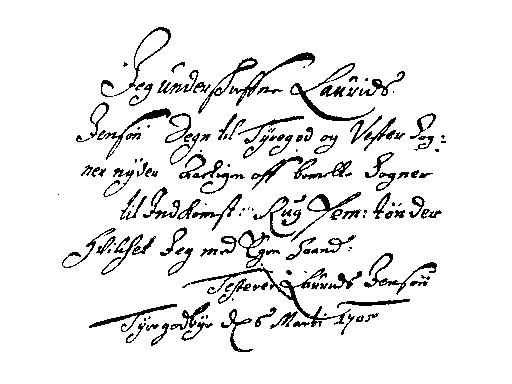 Jeg underskrffne Laurids
Jensøn Degn til Tyregod og Vester Sog:
ner nyder Aarligen aff bemelte Sogner
til Indkomst: Rug Fem: tønder
Hvilchet Jeg med Egen Haand:
Testerer Laurids Jensøn
Tyregodbye d 6 Marti 1705